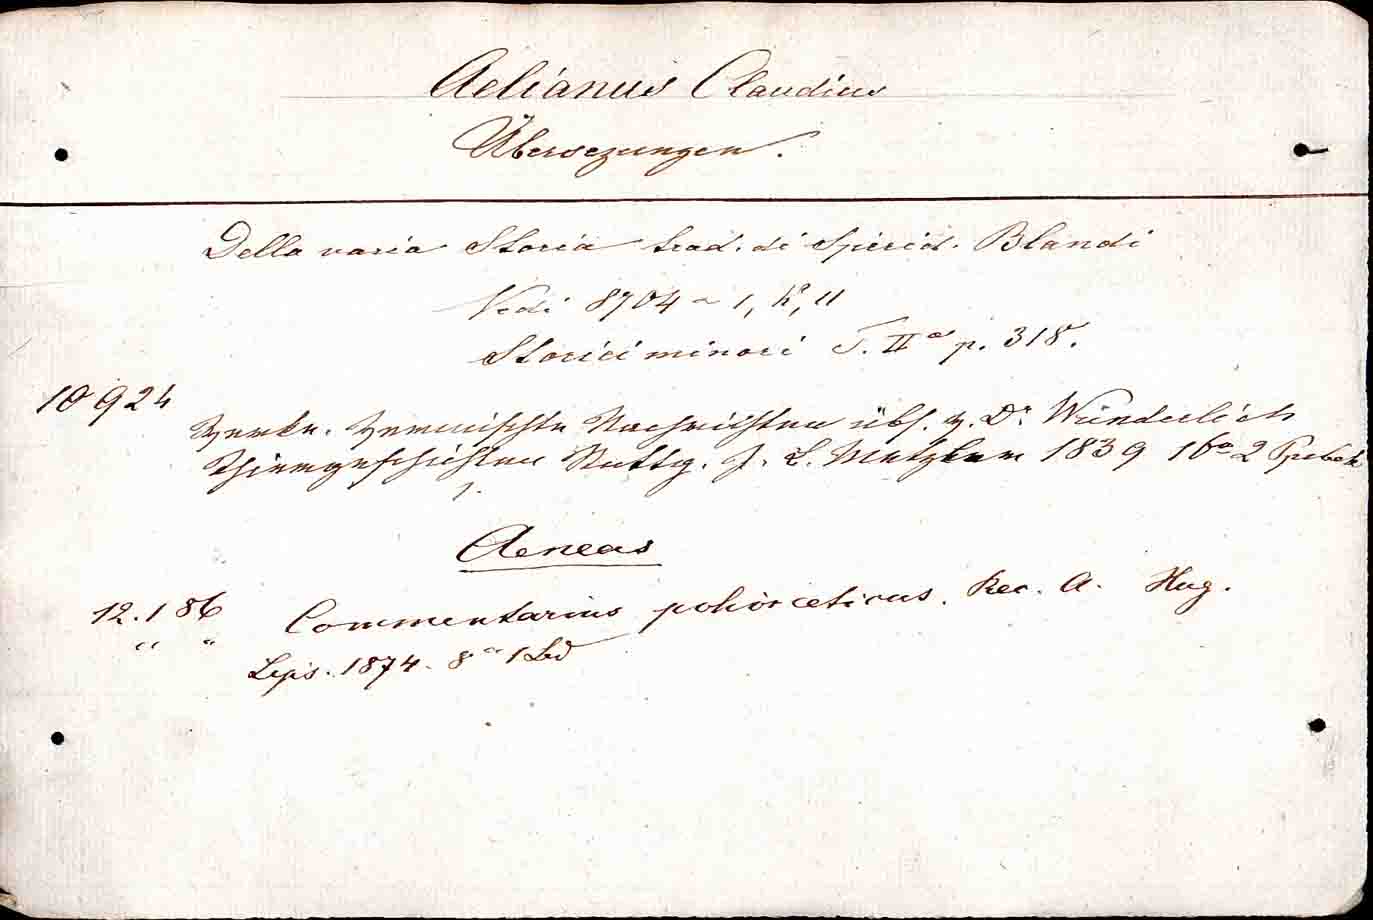 Aelianus Claudius
Übersezungen.
Della varia Storia trad. di Spirid. Blandi
Vedi 8704 ~ 1, k°, 11
Storici minori T. II° p. 318.
10924
Werke. Vermischte Nachrichten übs. v. Dr Wunderlich
Thiergeschichten Stuttg. J. B. Metzler 1839 16° 2
Aeneas
12.186 Commentarius poliorceticus. Rec. A. Hug.
" " Leps. 1874. 8° 1 Bd